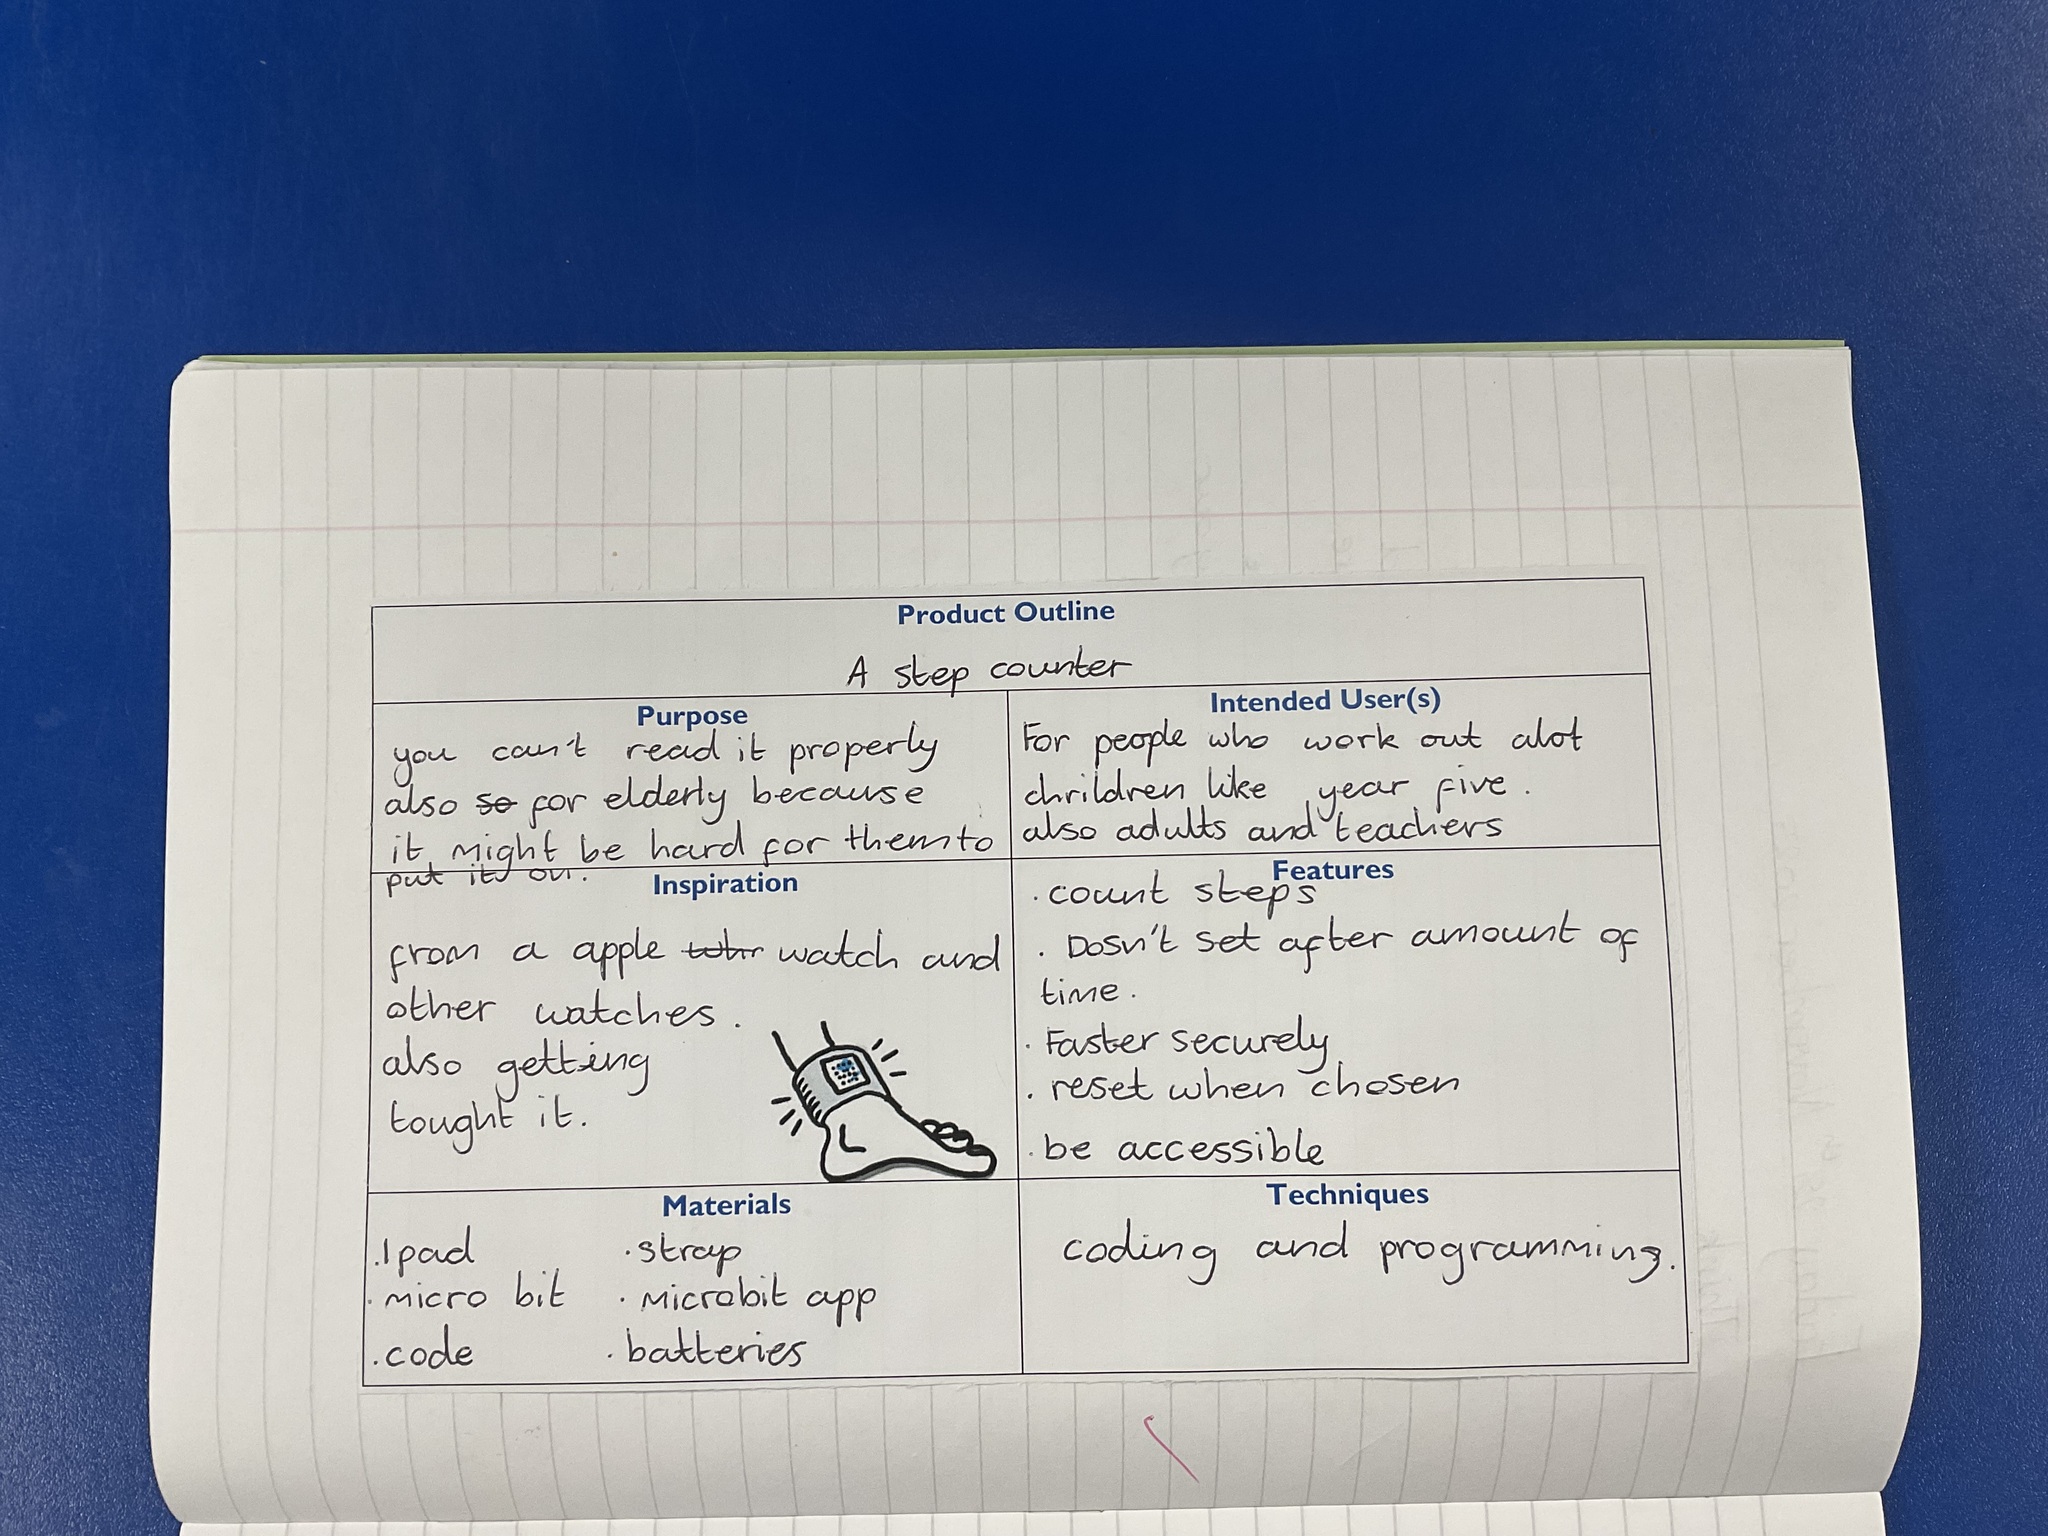 Product Outline
A step counter
Purpose
you can't read it properly
also so for elderly because
it might be hard for them to
put it on.
Intended User(s)
For people who work out alot
chrildren like year five.
also adults and teachers
Inspiration
from a apple watch and
other watches.
also getting
tought it.
Features
· count steps
· Dosn't set after amount of
time.
· Faster securely
· reset when chosen
· be accessible
Materials
· Ipad
· micro bit
· code
· strap
· microbit app
· batteries
Techniques
coding and programming.